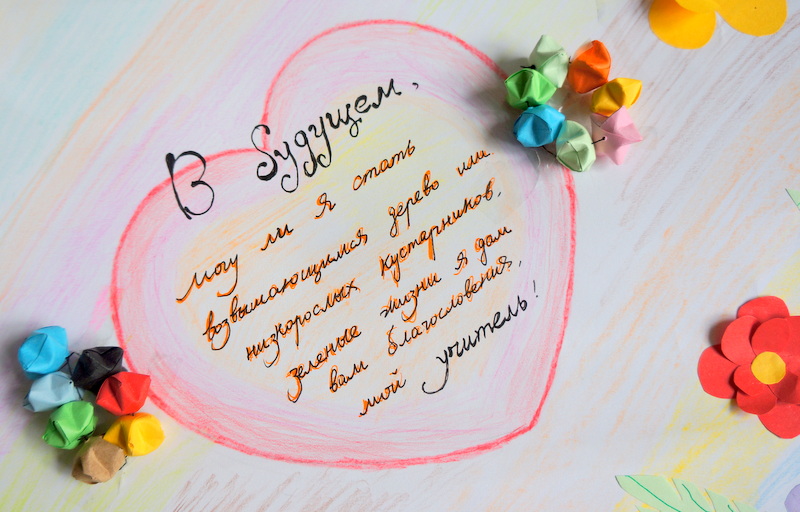 В будущем,
могу ли я стать
возвышающимся дерево или
низкорослых кустарников.
зеленые жизни я дам
вам благословения,
мой учитель!